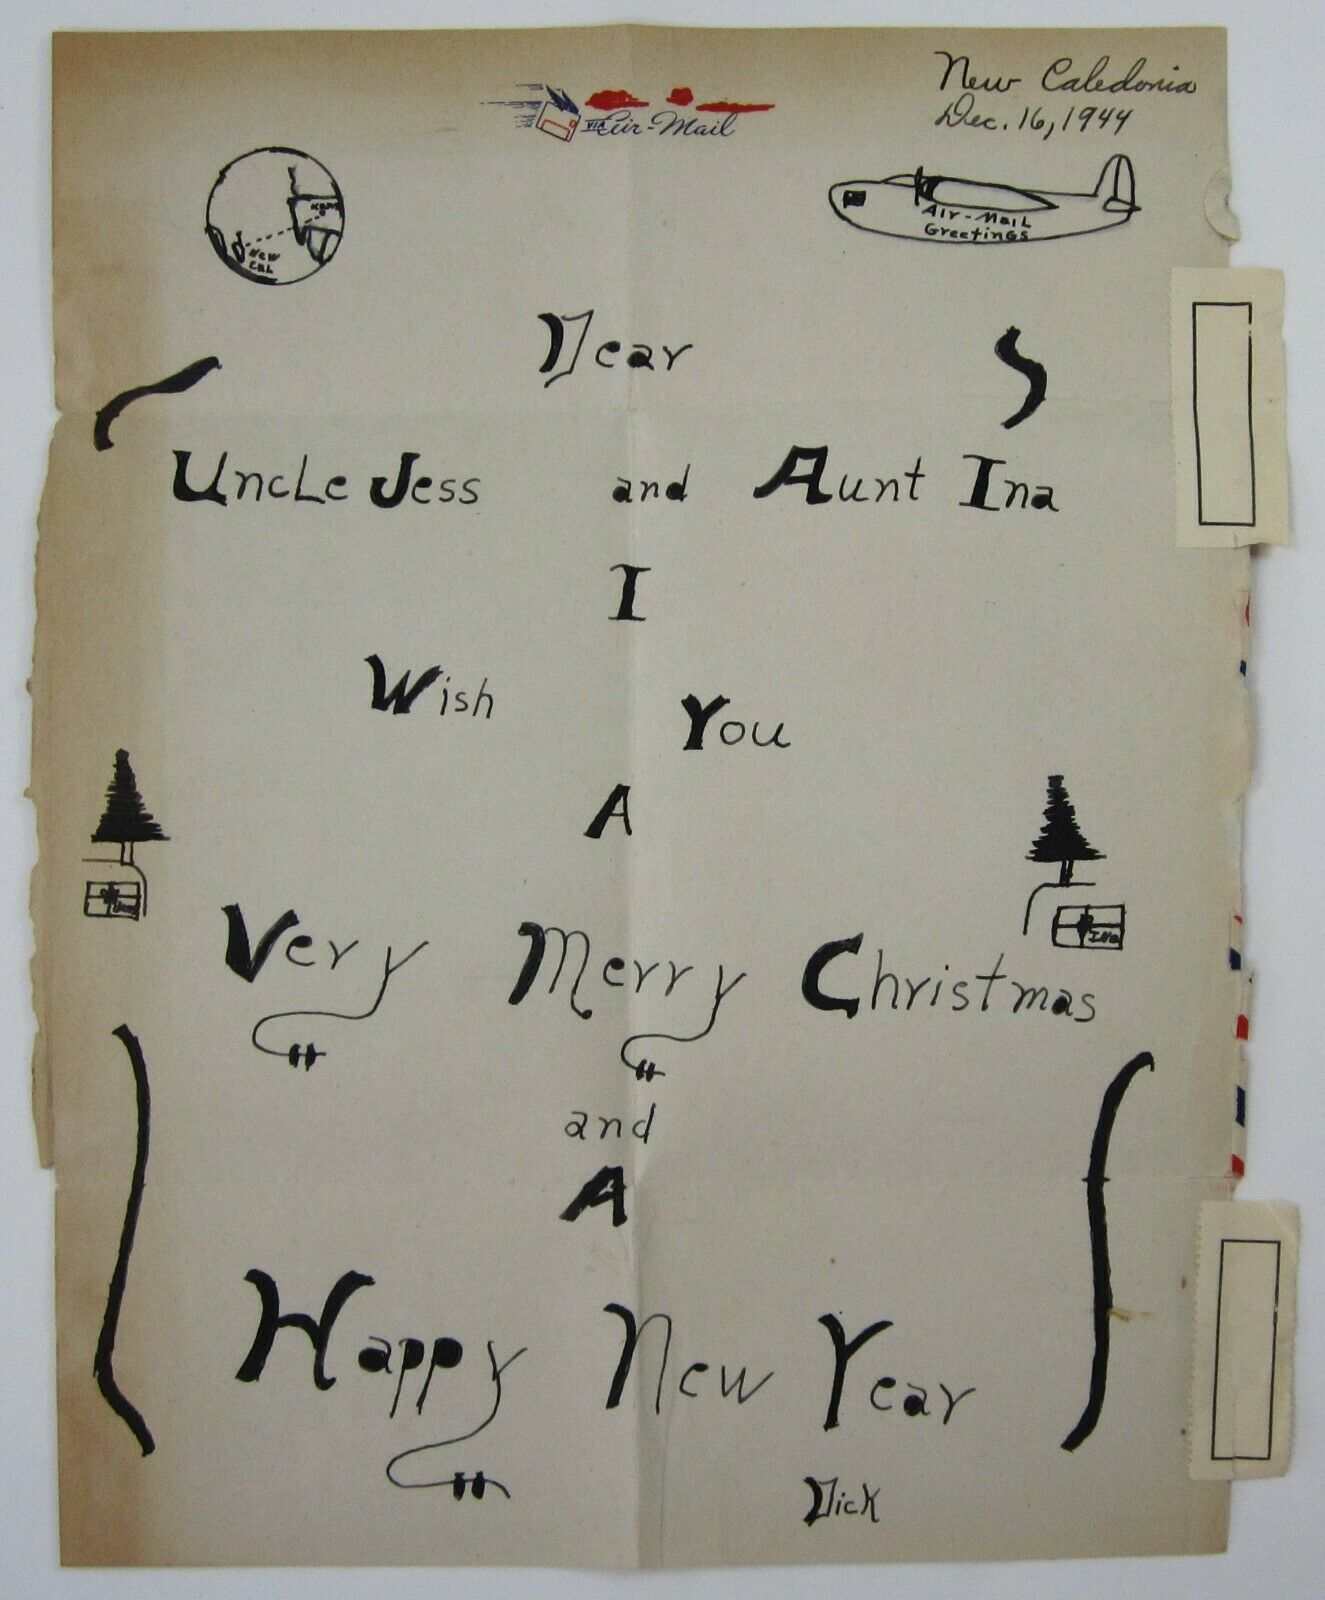 New Caledonia
Dec. 16, 1944
VIA Air-Mail
New
Cal
Air-Mail
Greetings
Dear
Uncle Jess and Aunt Ina
I
Wish You
A
Ina
Very Merry Christmas
and
A
Happy New Year
Dick